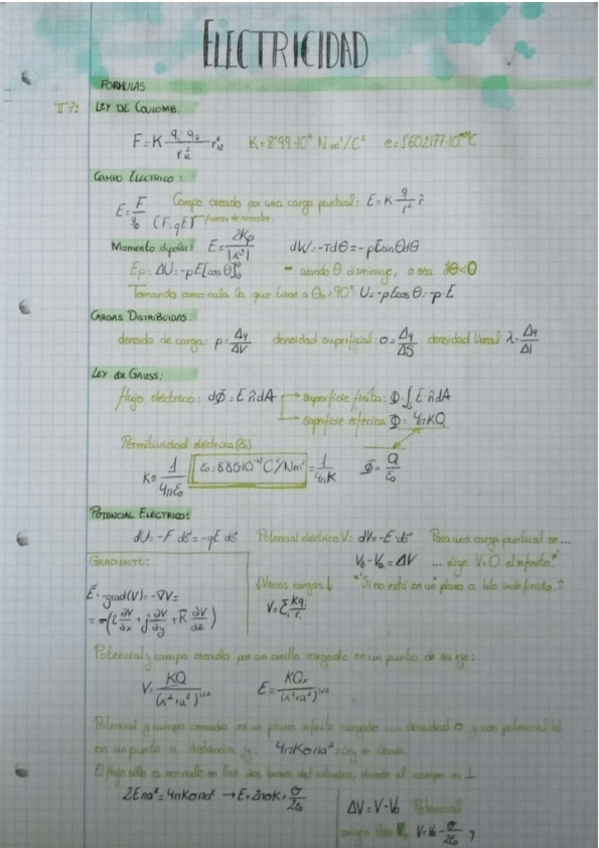 ELECTRICIDAD
FORMULAS
LEY DE COULOMB.
F = K q₁ q₂ / r₁₂² K = 8'99·10⁹ N m²/C² e = 1'602177·10⁻¹⁹ C
CAMPO ELECTRICO:
E = F/q₀ (F, qE) Campo creado por una carga puntual: E = K q/r² r̂
Momento dipolar: E = 2Kp/|x³| dW = -τdθ = -pE sen θ dθ
Ep: ΔU = -pE[cos θ] - cuando θ disminuye, o sea dθ<0
Tomando como nula la que tiene a θ₀ = 90° U = -pE cos θ = -p·E
CARGAS DISTRIBUIDAS.
densida de carga: ρ = Δq/ΔV densidad superficial: σ = Δq/ΔS densidad lineal λ = Δq/Δl
LEY de GAUSS:
flujo eléctrico: dΦ = E n̂ dA → superficie finita: Φ = ∫s E n̂ dA
→ superficie esferica Φ = 4πKQ
Permitividad eléctrica (ε₀)
K = 1/4πε₀ ε₀ = 8'85·10⁻¹² C²/Nm² = 1/4πK Φ = Q/ε₀
POTENCIAL ELECTRICO:
dU = -F ds = -qE ds Potencial electrico V: dV = -E ds Para una carga puntual se...
Vb - Va = ΔV ... elige V=0 el infinito.*
GRADIENTE:
↓Varias cargas↓ *Si no está en un plano o hilo indefinido.
E = -grad(V) = -∇V = V = Σ Kqi/ri
= -(i ∂V/∂x + j ∂V/∂y + k ∂V/∂z)
Potencial y campo creado por un anillo cargado en un punto de su eje:
V = KQ/(x²+a²)^1/2 E = KQx/(x²+a²)^3/2
Potencial y campo creado por un plano infinito cargado con densidad σ y con potencial V₀
en un punto a distancia y: 4πKσπa² = Ley de Gauss.
El flujo sólo es no nulo en las dos bases del cilindro, donde el campo es ⊥
2Eπa² = 4πKσπa² → E = 2πσK = σ/2ε₀
ΔV = V - V₀ Potencial
V = V₀ - σ/2ε₀ y